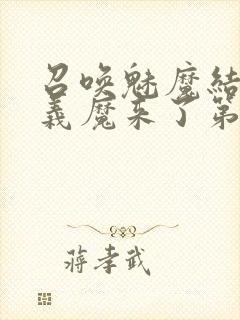 召唤魅魔结
义魔来了第
蒋孝武